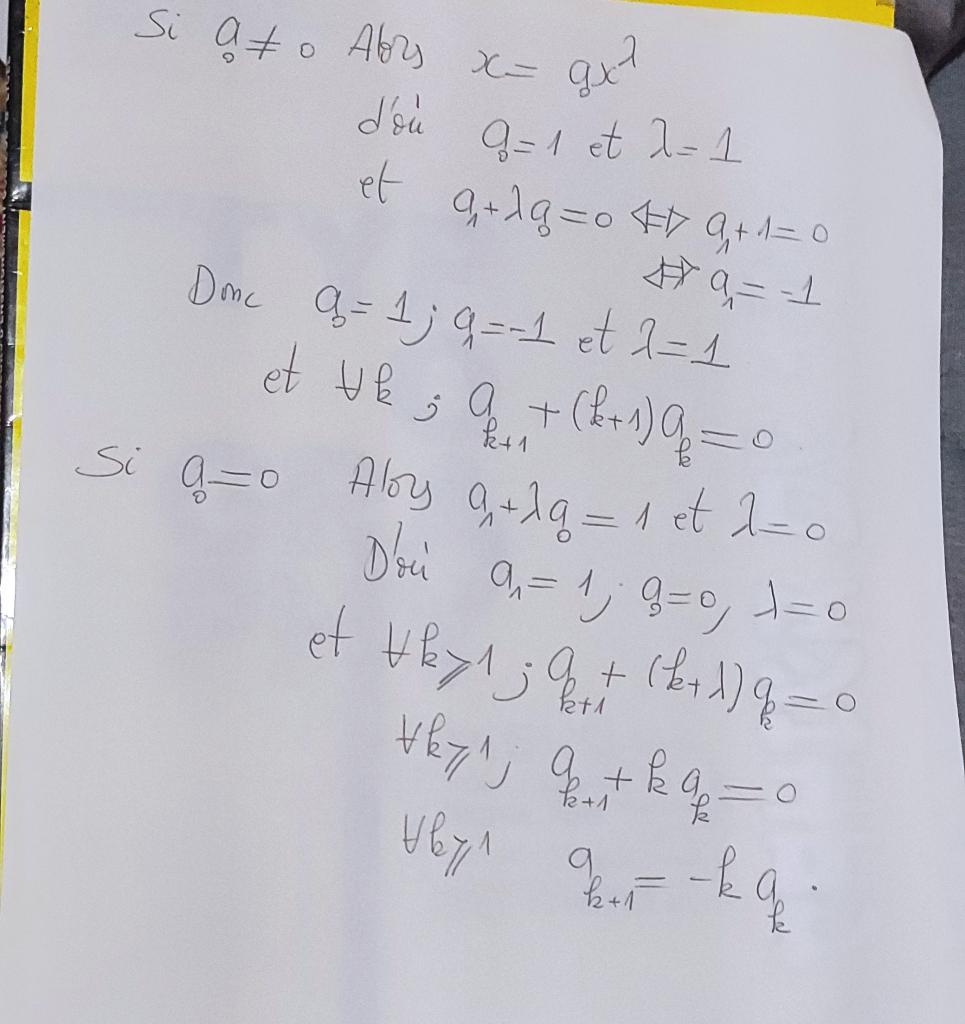 Si a₀ ≠ 0 Alors x = a₀x^λ
d'où a₀ = 1 et λ = 1
et a₁ + λa₀ = 0 ⇔ a₁ + 1 = 0
⇔ a₁ = -1
Donc a₀ = 1 ; a₁ = -1 et λ = 1
et ∀k ; a_{k+1} + (k+1)a_k = 0
Si a₀ = 0 Alors a₁ + λa₀ = 1 et λ = 0
D'où a₁ = 1 ; a₀ = 0, λ = 0
et ∀k ⩾ 1 ; a_{k+1} + (k+λ)a_k = 0
∀k ⩾ 1 ; a_{k+1} + k a_k = 0
∀k ⩾ 1 a_{k+1} = -k a_k .